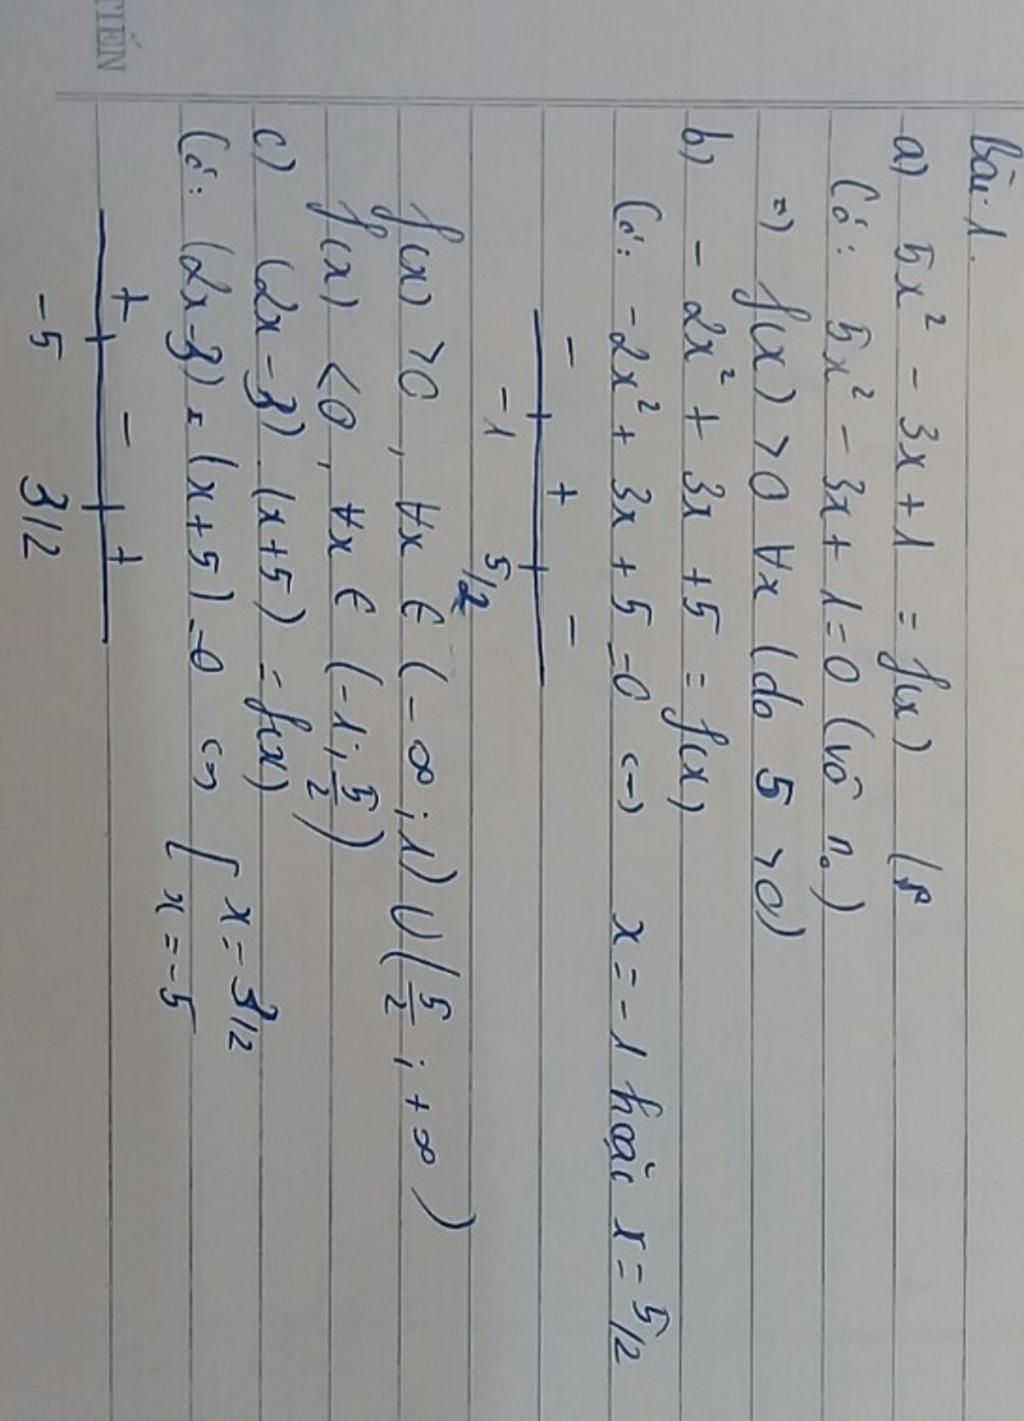 TIẾN
Bài 1.
a) 5x² - 3x + 1 = f(x)
Có: 5x² - 3x + 1 = 0 (vô n₀)
=) f(x) >0 ∀x (do 5 >0)
b) - 2x² + 3x + 5 = f(x)
Có: - 2x² + 3x + 5 = 0 <=> x = - 1 hoặc x = 5/2
- + -
-1 5/2
f(x) >0, ∀x ∈ (- ∞ ; 1) ∪ (5/2 ; + ∞)
f(x) <0, ∀x ∈ (-1 ; 5/2)
c) (2x - 3) . (x + 5) = f(x)
Có: (2x - 3) . (x + 5) = 0 <=> [ x = 3/2
x = - 5
+ - +
-5 3/2